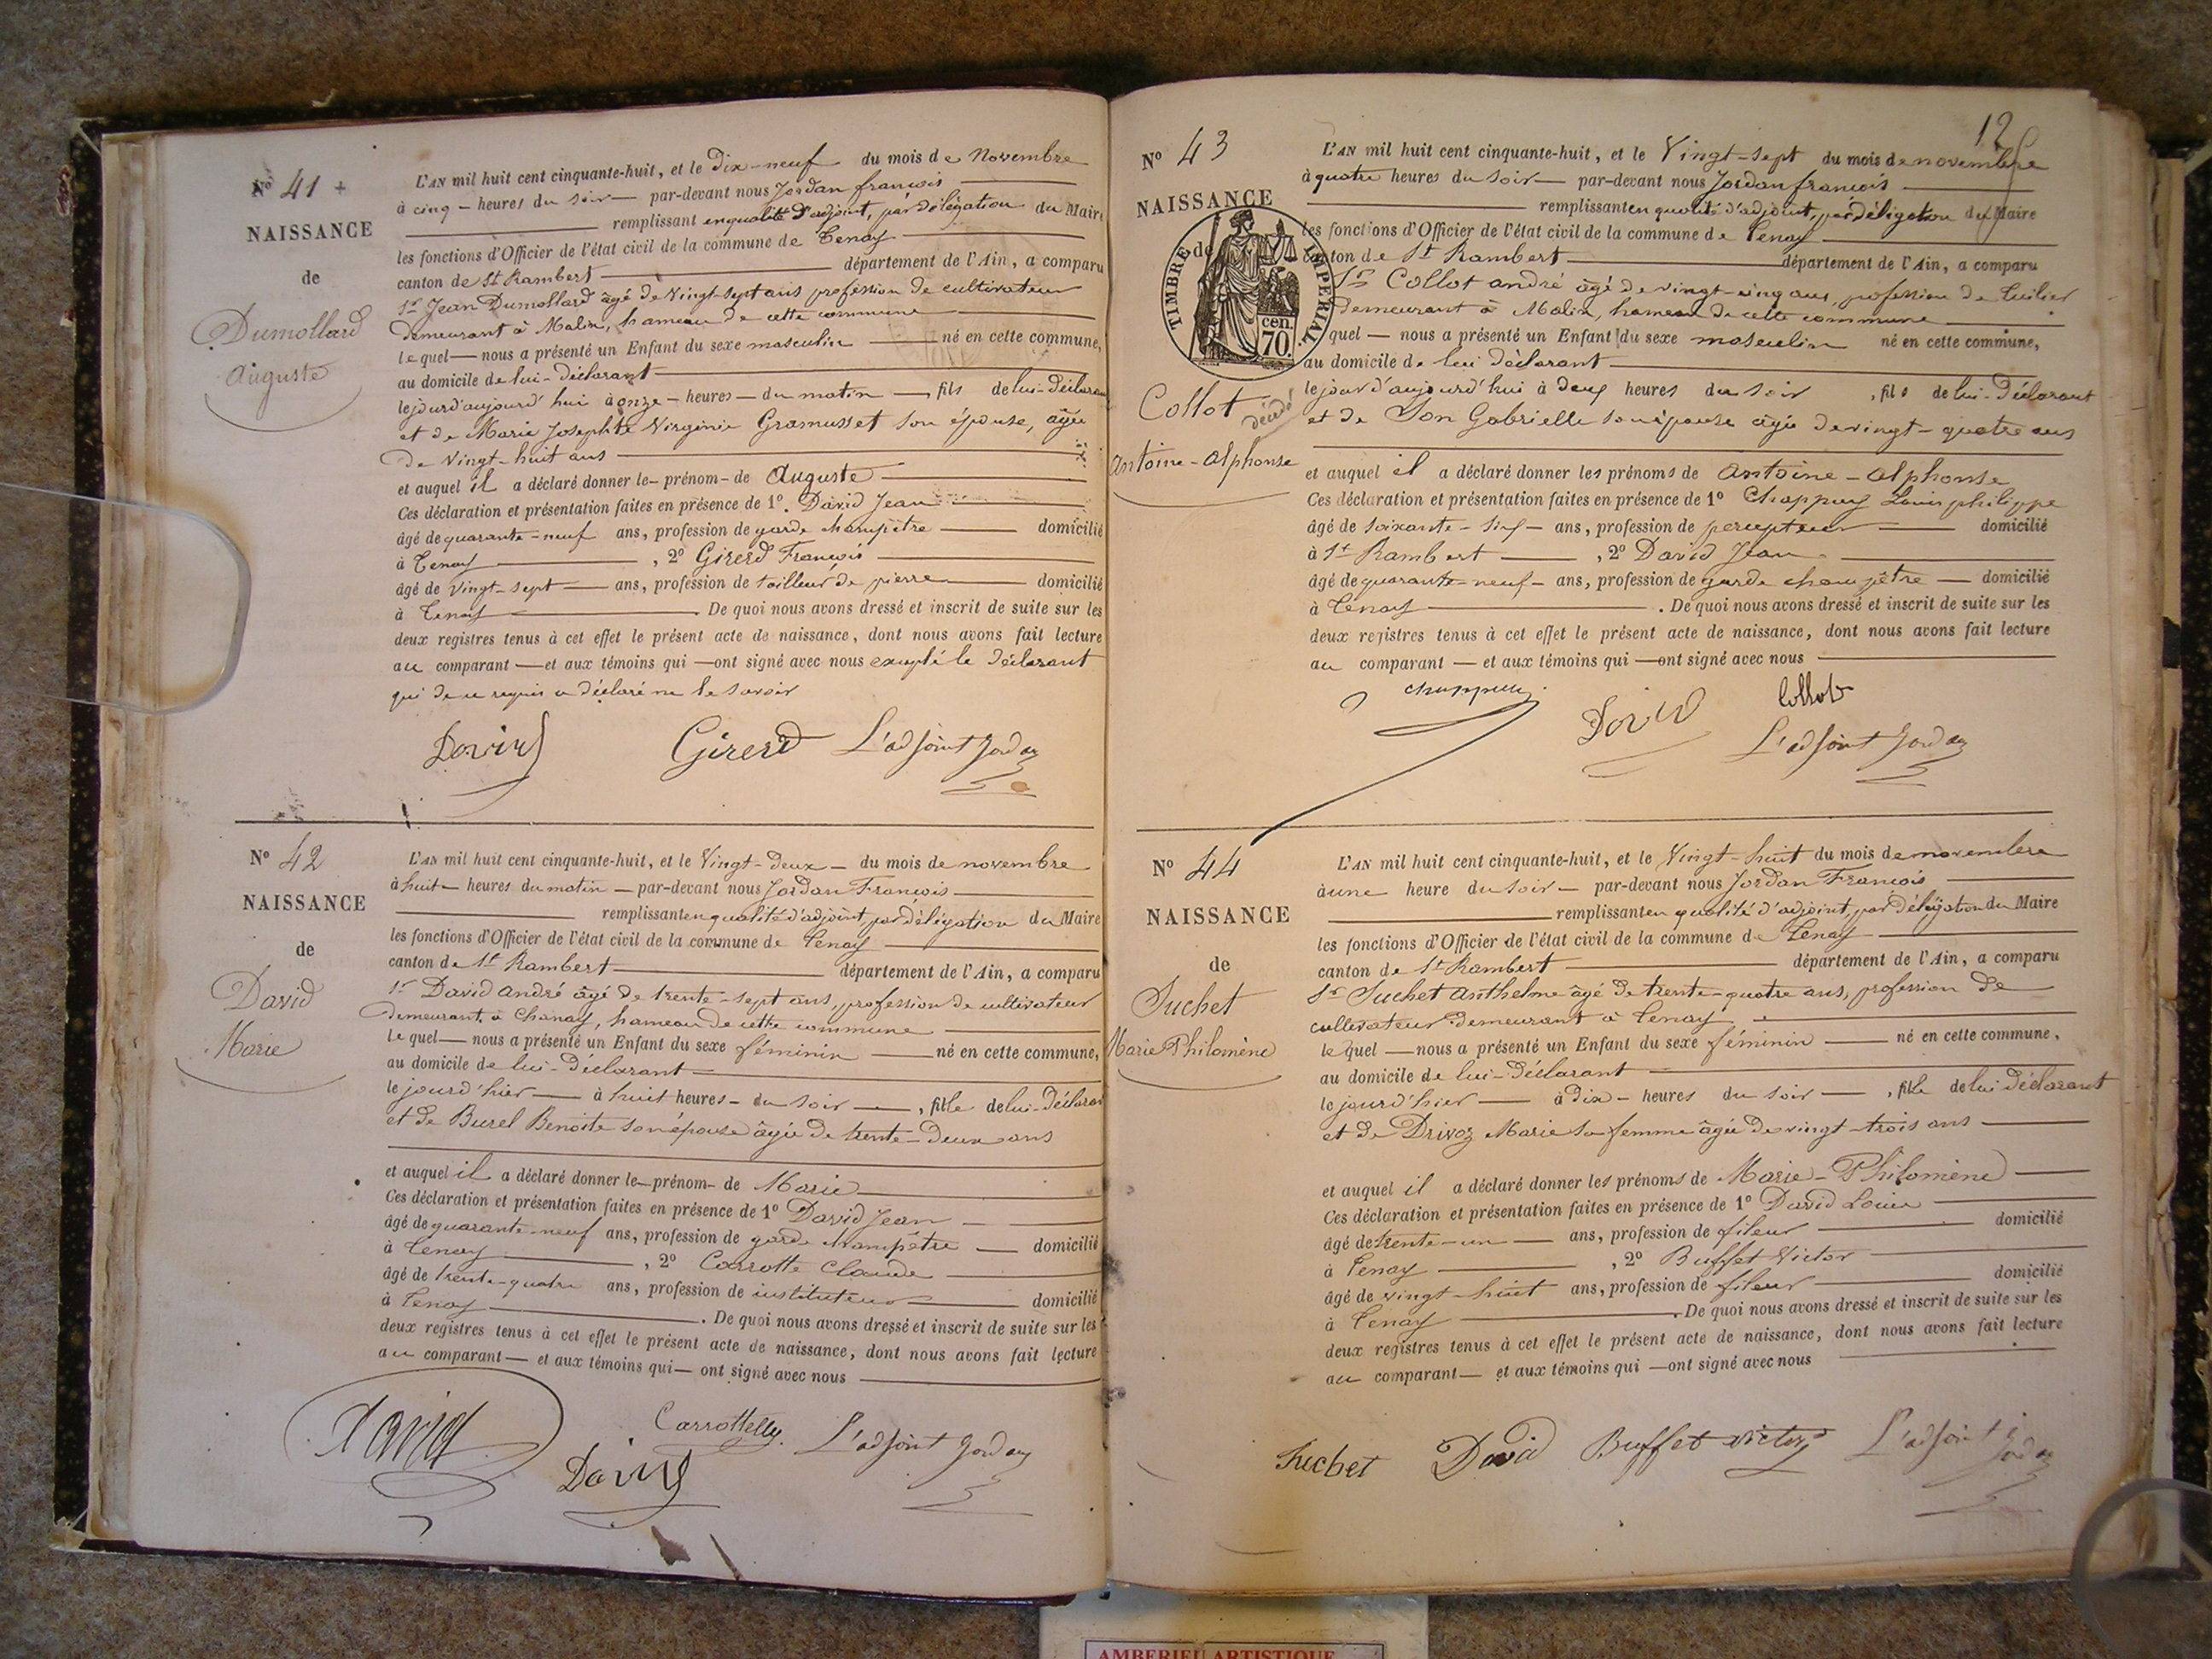 N° 41 +
NAISSANCE
de
Dumollard
Auguste
L'AN mil huit cent cinquante-huit, et le Dix-neuf du mois de Novembre
à cinq heures du soir par-devant nous Jordan françois
remplissant en qualité d'adjoint, par délégation du Maire
les fonctions d'Officier de l'état civil de la commune de Tenay
canton de St Rambert département de l'Ain, a comparu
Sr Jean Dumollard âgé de vingt-sept ans profession de cultivateur
demeurant à Malix, hameau de cette commune
lequel nous a présenté un Enfant du sexe masculin né en cette commune,
au domicile de lui-déclarant
le jour d'aujourd'hui à onze heures du matin, fils de lui-déclarant
et de Marie Josephte Virginie Gramusset son épouse, âgée
de vingt-huit ans
et auquel il a déclaré donner le prénom de Auguste
Ces déclaration et présentation faites en présence de 1°. David Jean
âgé de quarante-neuf ans, profession de garde champêtre domicilié
à Tenay, 2° Girerd François
âgé de vingt-sept ans, profession de tailleur de pierre domicilié
à Tenay. De quoi nous avons dressé et inscrit de suite sur les
deux registres tenus à cet effet le présent acte de naissance, dont nous avons fait lecture
au comparant et aux témoins qui ont signé avec nous excepté le déclarant
qui de ce requis a déclaré ne le savoir
David Girerd L'adjoint Jordan
N° 42
NAISSANCE
de
David
Marie
L'AN mil huit cent cinquante-huit, et le Vingt-deux du mois de novembre
à huit heures du matin par-devant nous Jordan François
remplissant en qualité d'adjoint, par délégation du Maire
les fonctions d'Officier de l'état civil de la commune de Tenay
canton de St Rambert département de l'Ain, a comparu
Sr David André âgé de trente-sept ans, profession de cultivateur
demeurant à Chanay, hameau de cette commune
lequel nous a présenté un Enfant du sexe féminin né en cette commune,
au domicile de lui-déclarant
le jour d'hier à huit heures du soir, fille de lui-déclarant
et de Burel Benoite son épouse âgée de trente-deux ans
et auquel il a déclaré donner le prénom de Marie
Ces déclaration et présentation faites en présence de 1° David Jean
âgé de quarante-neuf ans, profession de garde champêtre domicilié
à Tenay, 2° Carrotte Claude
âgé de trente-quatre ans, profession de instituteur domicilié
à Tenay. De quoi nous avons dressé et inscrit de suite sur les
deux registres tenus à cet effet le présent acte de naissance, dont nous avons fait lecture
au comparant et aux témoins qui ont signé avec nous
David David L'adjoint Jordan
12
N° 43
NAISSANCE
de
TIMBRE IMPERIAL
70 cen.
Collot
décédé
Antoine-Alphonse
L'AN mil huit cent cinquante-huit, et le Vingt-sept du mois de novembre
à quatre heures du soir par-devant nous Jordan françois
remplissant en qualité d'adjoint, par délégation du Maire
les fonctions d'Officier de l'état civil de la commune de Tenay
canton de St Rambert département de l'Ain, a comparu
Sr Collot andré âgé de vingt-cinq ans, profession de tuilier
demeurant à Malix, hameau de cette commune
quel nous a présenté un Enfant du sexe masculin né en cette commune,
au domicile de lui déclarant
le jour d'aujourd'hui à deux heures du soir, fils de lui-déclarant
et de Son Gabrielle son épouse âgée de vingt-quatre ans
et auquel il a déclaré donner les prénoms de Antoine-Alphonse
Ces déclaration et présentation faites en présence de 1° Chappuy Louis philippe
âgé de soixante-six ans, profession de percepteur domicilié
à St Rambert, 2° David Jean
âgé de quarante-neuf ans, profession de garde champêtre domicilié
à Tenay. De quoi nous avons dressé et inscrit de suite sur les
deux registres tenus à cet effet le présent acte de naissance, dont nous avons fait lecture
au comparant et aux témoins qui ont signé avec nous
David Collot
L'adjoint Jordan
N° 44
NAISSANCE
de
Suchet
Marie Philomène
L'AN mil huit cent cinquante-huit, et le Vingt-huit du mois de novembre
à une heure du soir par-devant nous Jordan François
remplissant en qualité d'adjoint, par délégation du Maire
les fonctions d'Officier de l'état civil de la commune de Tenay
canton de St Rambert département de l'Ain, a comparu
Sr Suchet Anthelme âgé de trente-quatre ans, profession de
cultivateur demeurant à Tenay
lequel nous a présenté un Enfant du sexe féminin né en cette commune,
au domicile de lui-déclarant
le jour d'hier à dix heures du soir, fille de lui déclarant
et de Drivoz Marie sa femme âgée de vingt-trois ans
et auquel il a déclaré donner les prénoms de Marie-Philomène
Ces déclaration et présentation faites en présence de 1° David Louis
âgé de trente-un ans, profession de fileur domicilié
à Tenay, 2° Buffet Victor
âgé de vingt-huit ans, profession de fileur domicilié
à Tenay. De quoi nous avons dressé et inscrit de suite sur les
deux registres tenus à cet effet le présent acte de naissance, dont nous avons fait lecture
au comparant et aux témoins qui ont signé avec nous
Suchet David Buffet victor L'adjoint Jordan
AMBERIEU ARTISTIQUE